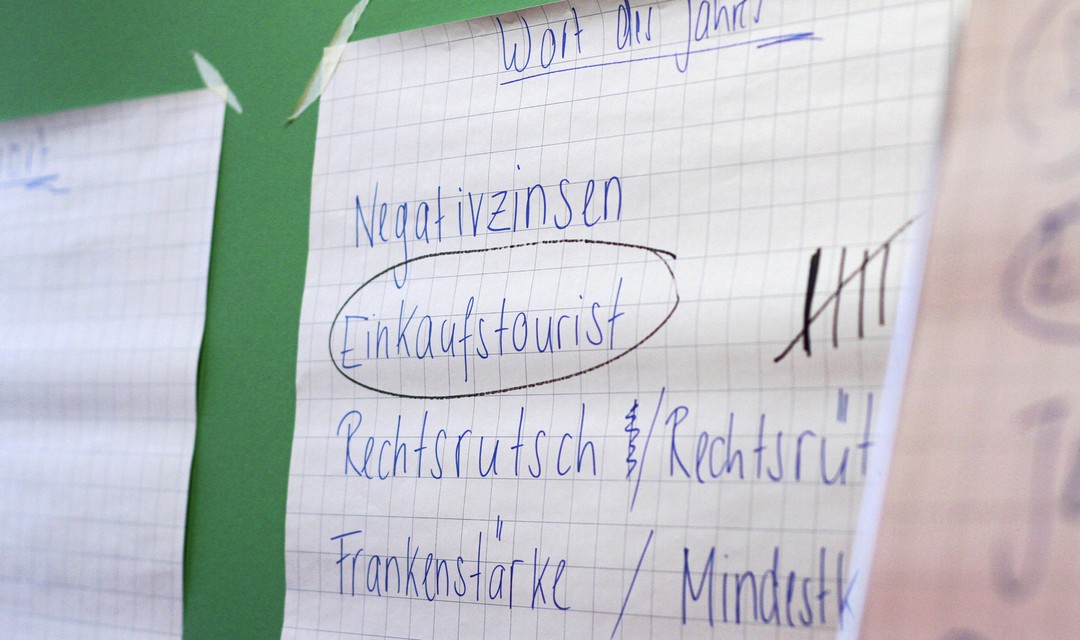 Wort des Jahres
Negativzinsen
Einkaufstourist
Rechtsrutsch / Rechtsrüt
Frankenstärke / Mindestk